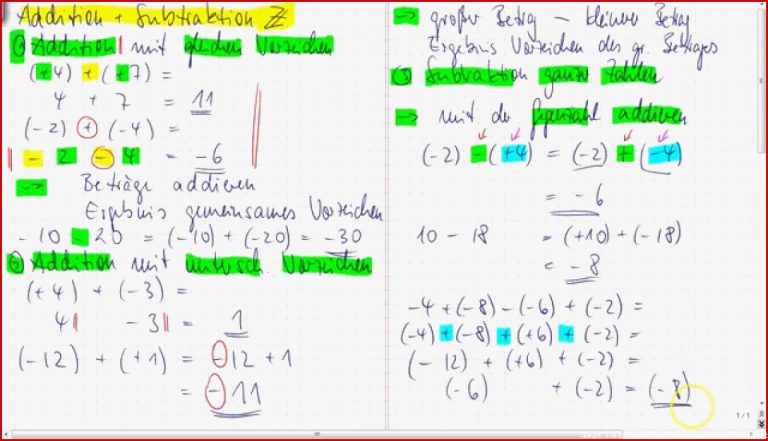 Addition + Subtraktion ℤ
① Addition mit gleichen Vorzeichen
(+4) + (+7) =
4 + 7 = 11
(-2) + (-4) =
- 2 - 4 = -6
→ Beträge addieren
Ergebnis gemeinsames Vorzeichen
- 10 - 20 = (-10) + (-20) = -30
② Addition mit untersch. Vorzeichen
(+4) + (-3) =
4 - 3 = 1
(-12) + (+1) = -12 + 1
= -11
→ großer Betrag - kleiner Betrag
Ergebnis Vorzeichen des gr. Betrages
③ Subtraktion ganzer Zahlen
→ mit der Gegenzahl addieren
(-2) - (+4) = (-2) + (-4)
= -6
10 - 18 = (+10) + (-18)
= -8
-4 + (-8) - (-6) + (-2) =
(-4) + (-8) + (+6) + (-2) =
(-12) + (+6) + (-2) =
(-6) + (-2) = (-8)
1/1